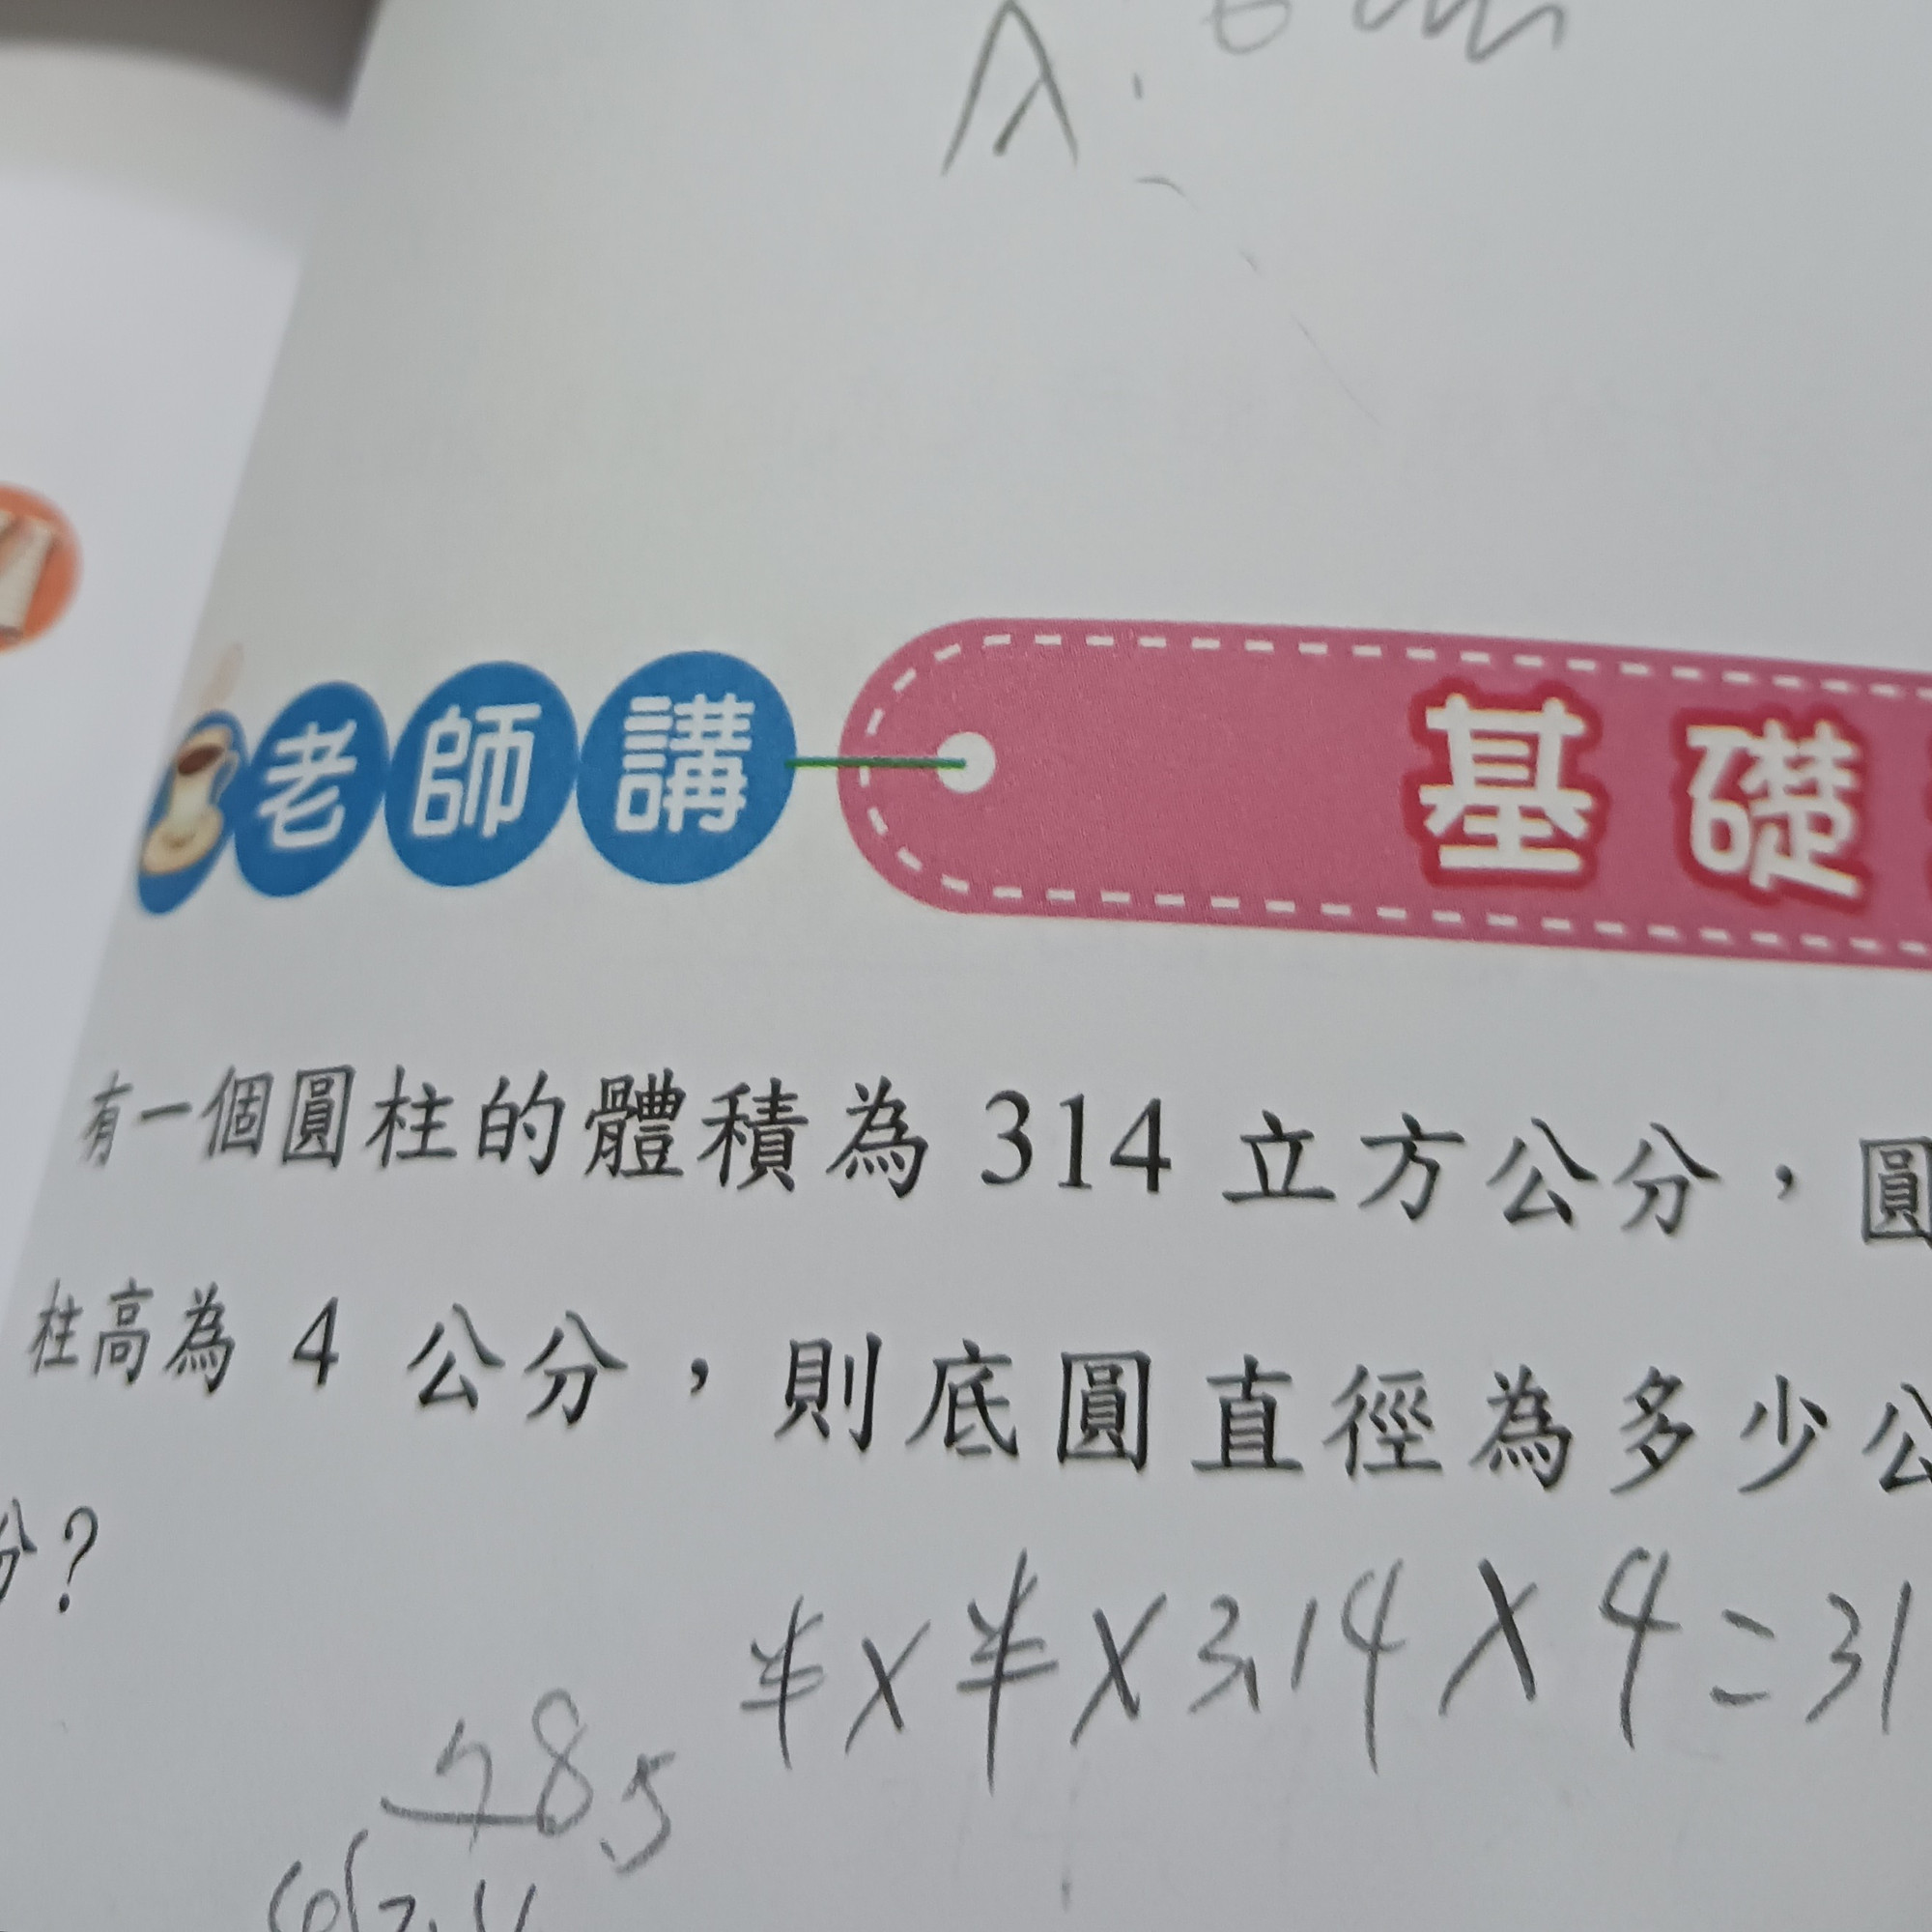 A:
老師講
基礎
有一個圓柱的體積為 314 立方公分，圓
柱高為 4 公分，則底圓直徑為多少公
分？
半×半×3.14×4=31
78.5